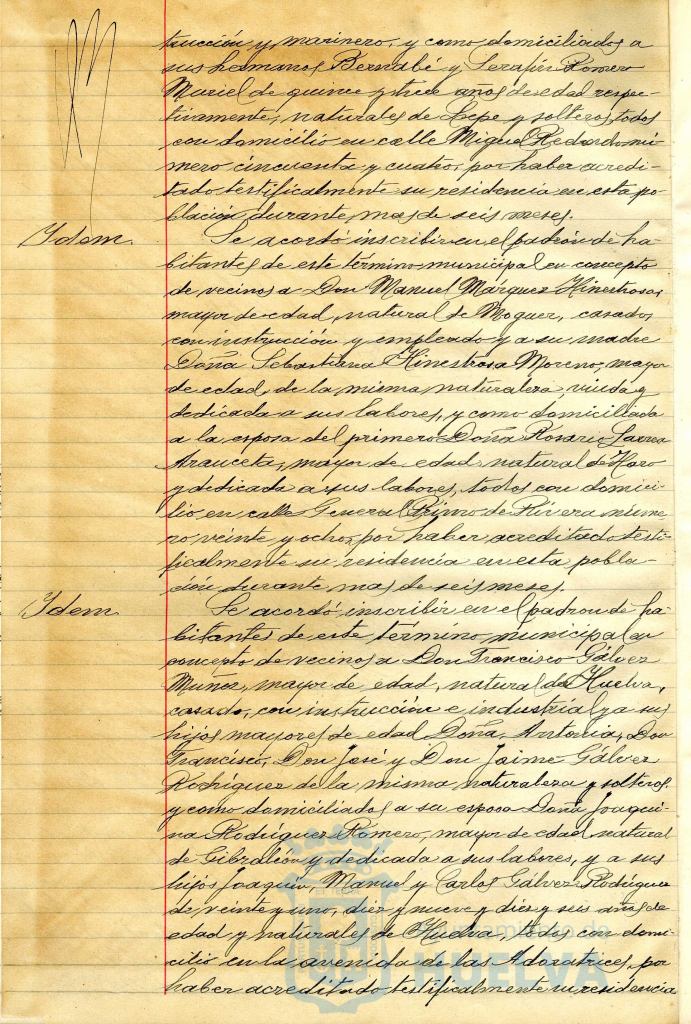 trucción y marinero, y como domiciliados a
sus hermanos Bernabé y Serafín Romero
Muriel de quince y trece años de edad respec-
tivamente, naturales de Lepe y solteros, todos
con domicilio en calle Miguel Redondo nú-
mero cincuenta y cuatro, por haber acredi-
tado testificalmente su residencia en esta po-
blación durante mas de seis meses.
Idem.
Se acordó inscribir en el padrón de ha-
bitantes de este término municipal en concepto
de vecinos a Don Manuel Márquez Hinestrosa,
mayor de edad, natural de Moguer, casado,
con instrucción y empleado y a su madre
Doña Sebastiana Hinestrosa Moreno, mayor
de edad, de la misma naturaleza, viuda y
dedicada a sus labores, y como domiciliada
a la esposa del primero Doña Rosario Larrea
Arauceta, mayor de edad natural de Haro
y dedicada a sus labores, todos con domici-
lio en calle General Primo de Rivera núme-
ro veinte y ocho, por haber acreditado testi-
ficalmente su residencia en esta pobla-
ción durante mas de seis meses.
Idem.
Se acordó inscribir en el padron de ha-
bitantes de este término municipal en
concepto de vecinos a Don Francisco Gálvez
Muñoz, mayor de edad, natural de Huelva,
casado, con instrucción e industrial y a sus
hijos mayores de edad Doña Antonia, Don
Francisco, Don José y Don Jaime Gálvez
Rodríguez de la misma naturaleza y solteros,
y como domiciliados a su esposa Doña Joaqui-
na Rodríguez Romero, mayor de edad natural
de Gibraleón y dedicada a sus labores, y a sus
hijos Joaquín, Manuel y Carlos Gálvez Rodríguez
de veinte y uno, diez y nueve y diez y seis años de
edad y naturales de Huelva, todos con domi-
cilio en la avenida de las Adoratrices, por
haber acreditado testificalmente su residencia
HUELVA